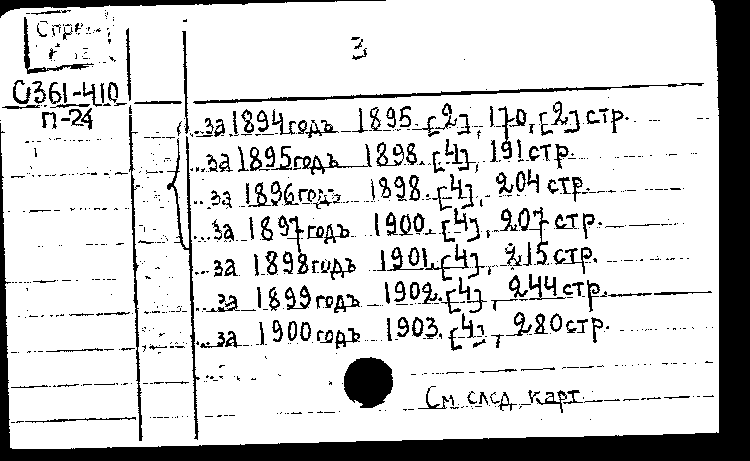 3
О361-410
П-24
...за 1894 годъ 1895. [2], 170, [2] стр.
...за 1895 годъ 1898. [4], 191 стр.
...за 1896 годъ 1898. [4], 204 стр.
...за 1897 годъ 1900. [4], 207 стр.
...за 1898 годъ 1901. [4], 215 стр.
...за 1899 годъ 1902. [4], 244 стр.
...за 1900 годъ 1903. [4], 280 стр.
См след карт